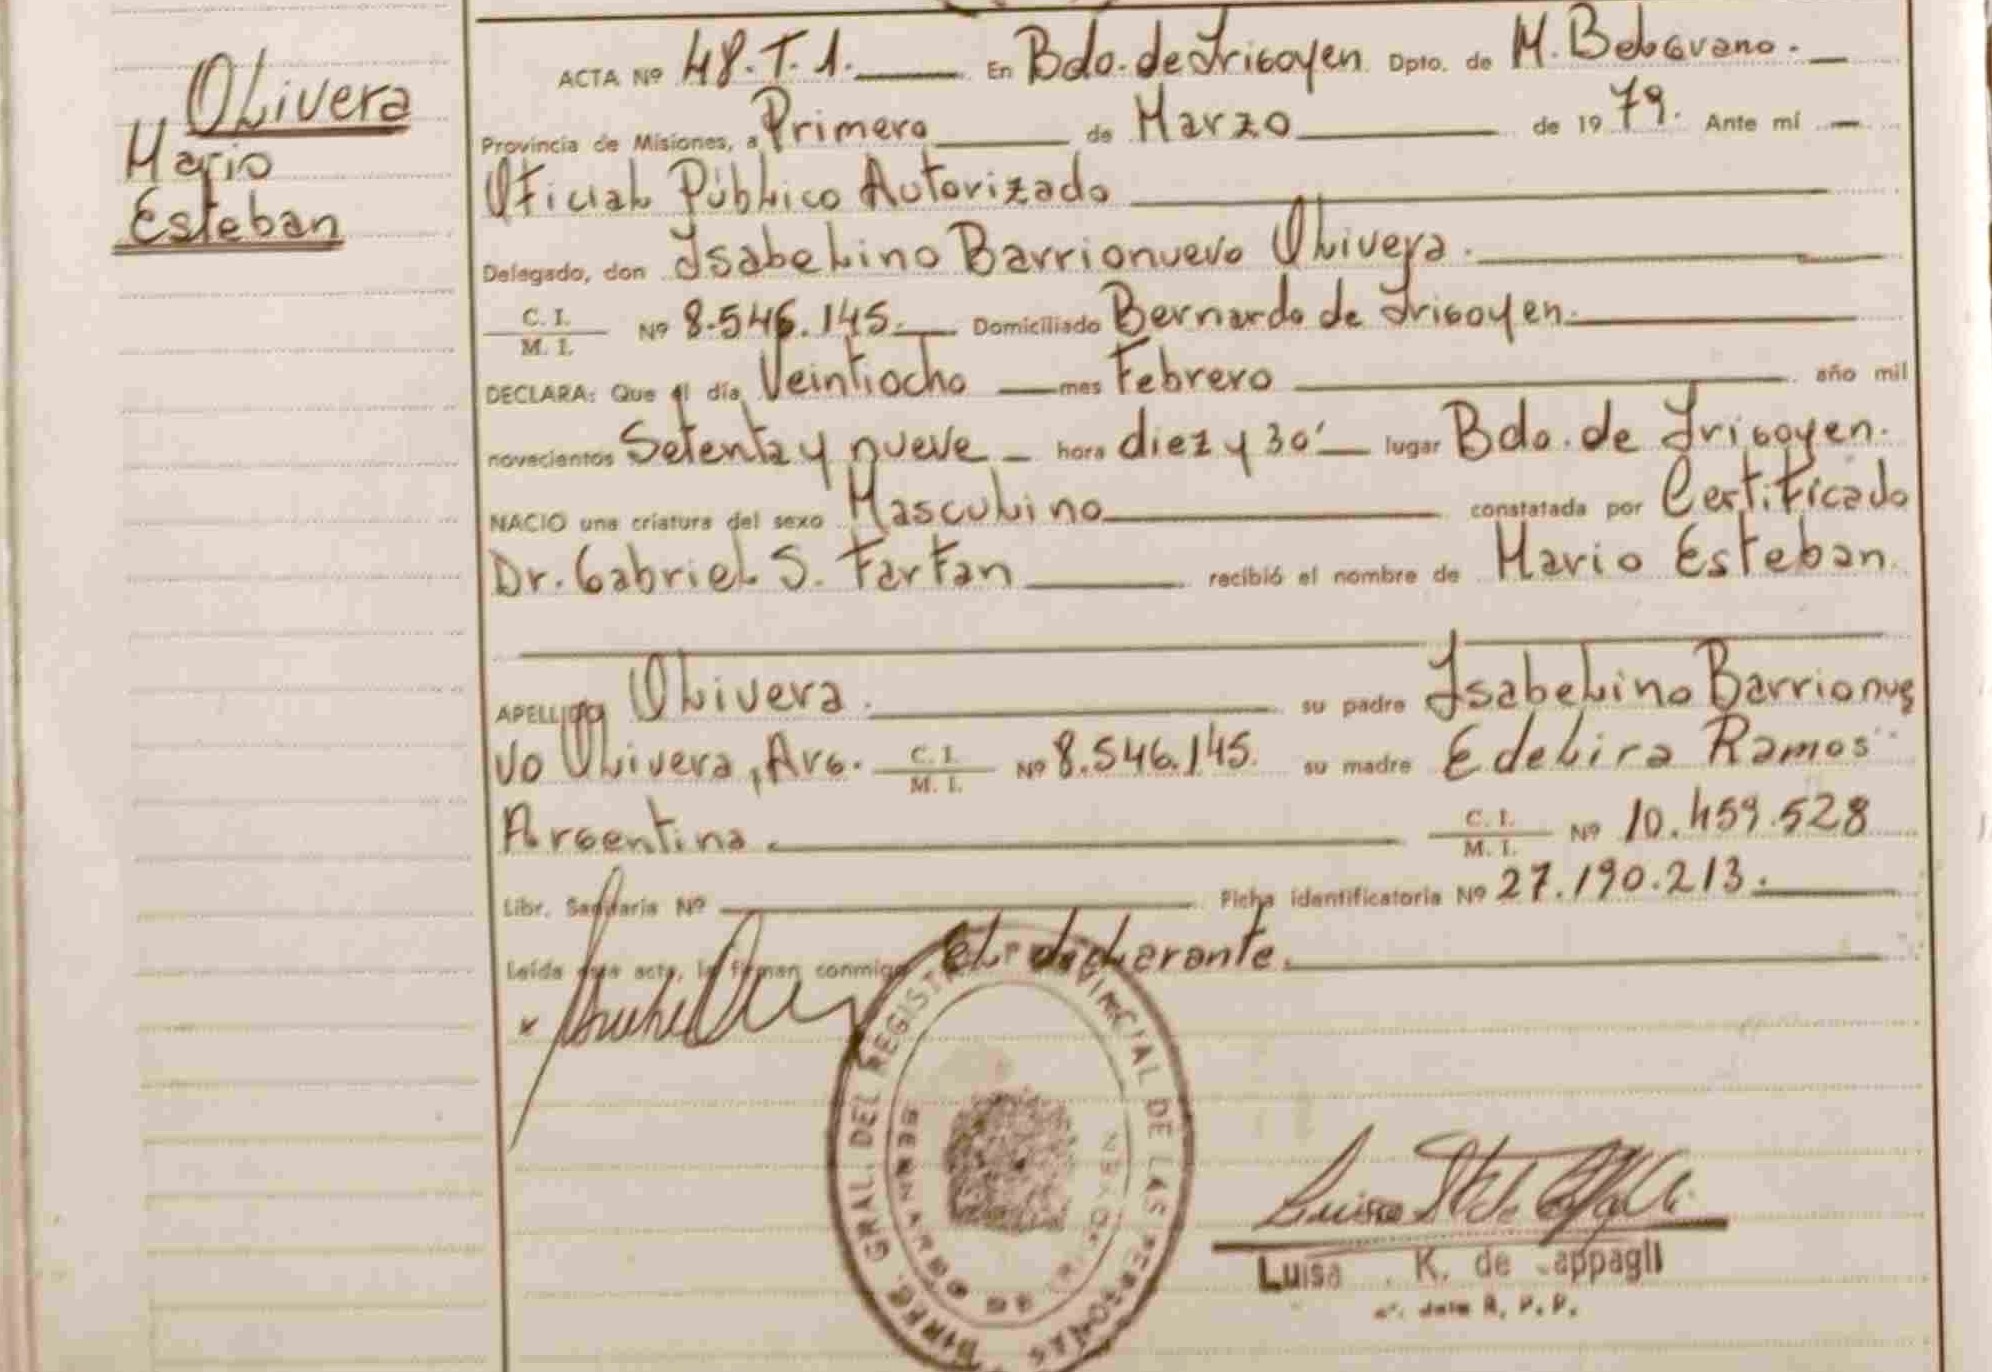 Olivera
Mario
Esteban
ACTA Nº 48.T.1. En Bdo. de Irigoyen Dpto. de M. Belgrano.
Provincia de Misiones, a Primero de Marzo de 1979. Ante mí
Oficial Público Autorizado
Delegado, don Isabelino Barrionuevo Olivera.
C. I. / M. I. Nº 8.546.145. Domiciliado Bernardo de Irigoyen.
DECLARA: Que el día Veintiocho mes Febrero año mil
novecientos Setenta y nueve hora diez y 30' lugar Bdo. de Irigoyen.
NACIO una criatura del sexo Masculino constatada por Certificado
Dr. Gabriel S. Farfan recibió el nombre de Mario Esteban.
APELLIDO Olivera. su padre Isabelino Barrionue
vo Olivera, Arg. C. I. / M. I. Nº 8.546.145. su madre Edelira Ramos
Argentina. C. I. / M. I. Nº 10.459.528
Libr. Sanitaria Nº Ficha identificatoria Nº 27.190.213.
Leída esta acta, la firman conmigo el declarante.
DIREC. GRAL. DEL REGISTRO PROVINCIAL DE LAS PERSONAS
BERNARDO DE IRIGOYEN
Luisa K. de
R. P. P.